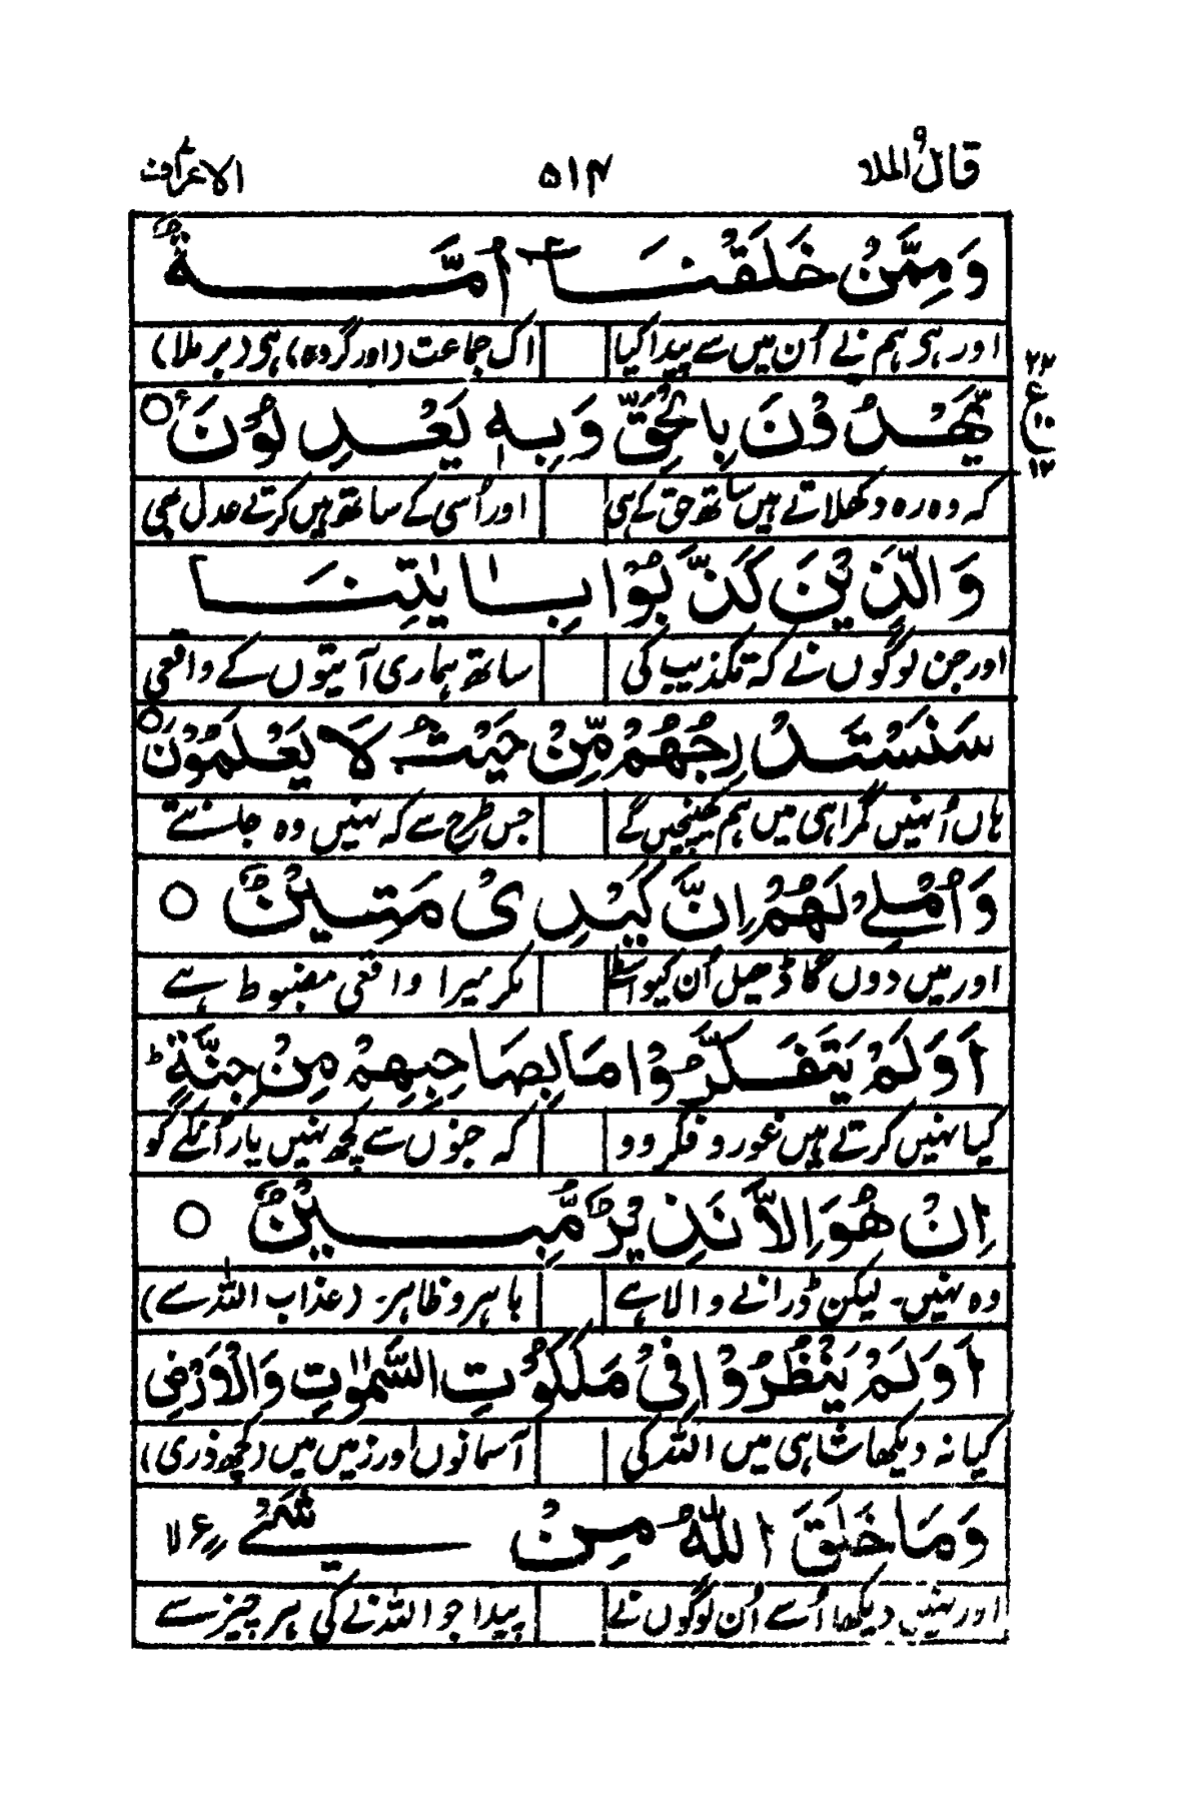 قال الملا ۹ ۵۱۴ الاعراف ۷
وَمِمَّنْ خَلَقْنَآ اُمَّةٌ
اور ہی ہم نے اُن میں سے پیدا کیا اک جماعت (اور گروہ) ہی (بر ملا)
يَّهْدُوْنَ بِالْحَقِّ وَبِهٖ يَعْدِلُوْنَ ○
۲۲
ع
۱۲
کہ وہ رہ دکھلاتے ہیں ساتھ حق کے ہی اور اُسی کے ساتھ ہیں کرتے عدل بھی
وَالَّذِيْنَ كَذَّبُوْا بِاٰيٰتِنَا
اور جن لوگوں نے کہ تکذیب کی ساتھ ہماری آیتوں کے واقعی
سَنَسْتَدْرِجُهُمْ مِّنْ حَيْثُ لَا يَعْلَمُوْنَ ○
ہاں اُنہیں گمراہی میں ہم کھینچیں گے جس طرح سے کہ نہیں وہ جانتے
وَاُمْلِيْ لَهُمْ اِنَّ كَيْدِيْ مَتِيْنٌ ○
اور میں دوں گا ڈھیل اُن کیواسطے مکر میرا واقعی مضبوط ہے
اَوَلَمْ يَتَفَكَّرُوْا مَا بِصَاحِبِهِمْ مِنْ جِنَّةٍ ط
کیا نہیں کرتے ہیں غور و فکر وو کہ جنوں سے کچھ نہیں یار اُنکے کو
اِنْ هُوَ اِلَّا نَذِيْرٌ مُّبِيْنٌ ○
وہ نہیں۔ لیکن ڈرانے والا ہے باہر و ظاہر۔ (عذاب اللہ سے)
اَوَلَمْ يَنْظُرُوْا فِيْ مَلَكُوْتِ السَّمٰوٰتِ وَالْاَرْضِ
کیا نہ دیکھا شاہی میں اللہ کی آسمانوں اور زمیں میں (کچھ ذری)
وَمَا خَلَقَ اللّٰهُ مِنْ شَيْءٍ لا
اور نہیں دیکھا اُسے اُن لوگوں نے پیدا جو اللہ نے کی ہر چیز سے